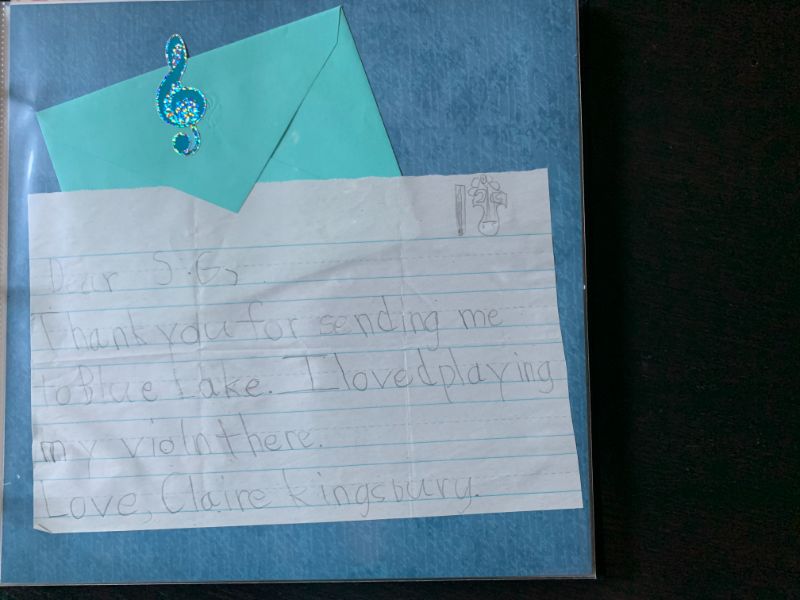 Dear S.G,
Thank you for sending me
to Blue Lake. I loved playing
my violn there.
Love, Claire Kingsbury.